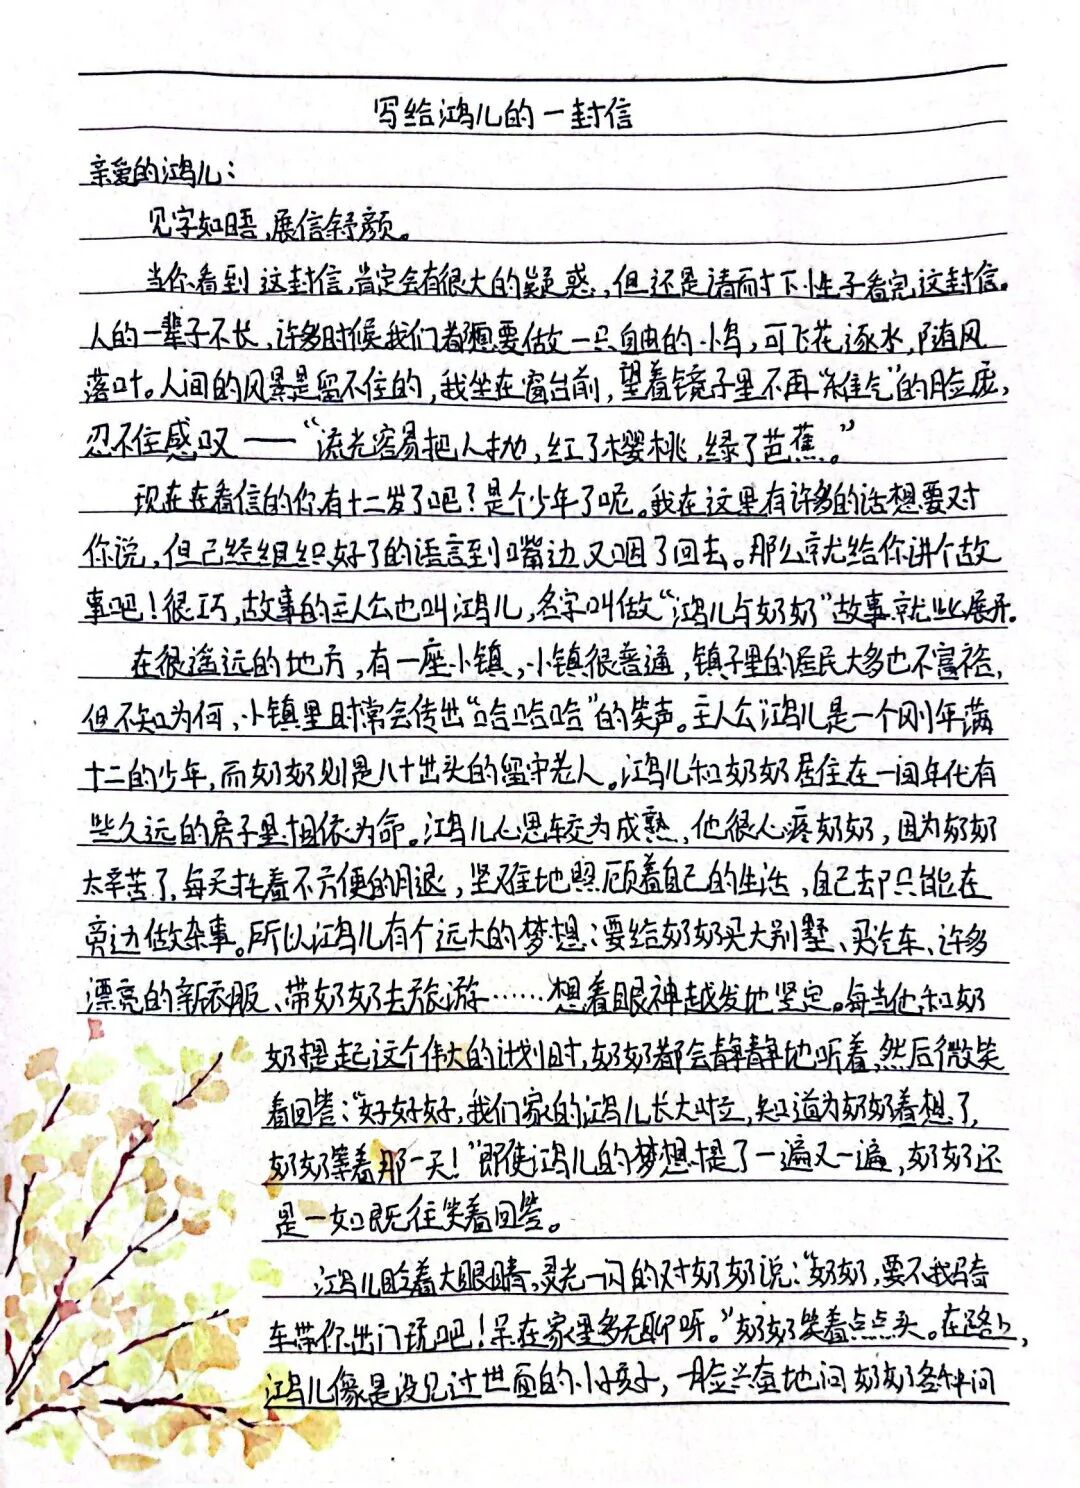 写给鸿儿的一封信
亲爱的鸿儿：
见字如晤,展信舒颜。
当你看到这封信,肯定会有很大的疑惑,但还是请耐下性子看完这封信。
人的一辈子不长,许多时候我们都想要做一只自由的小鸟,可飞花逐水,随风
落叶。人间的风景是留不住的,我坐在窗台前,望着镜子里不再“稚气”的脸庞,
忍不住感叹——“流光容易把人抛,红了樱桃,绿了芭蕉。”
现在在看信的你有十二岁了吧?是个少年了呢。我在这里有许多的话想要对
你说,但已经组织好了的语言到嘴边又咽了回去。那么就给你讲个故
事吧!很巧,故事的主人公也叫鸿儿,名字叫做“鸿儿与奶奶”故事就此展开.
在很遥远的地方,有一座小镇,小镇很普通,镇子里的居民大多也不富裕,
但不知为何,小镇里时常会传出“哈哈哈”的笑声。主人公鸿儿是一个刚年满
十二的少年,而奶奶则是八十出头的留守老人。鸿儿和奶奶居住在一间年代有
些久远的房子里相依为命。鸿儿心思较为成熟,他很心疼奶奶,因为奶奶
太辛苦了,每天拄着不方便的月退,坚难地照顾着自己的生活,自己却只能在
旁边做杂事。所以鸿儿有个远大的梦想:要给奶奶买大别墅、买汽车、许多
漂亮的新衣服、带奶奶去旅游……想着眼神越发地坚定。每当他和奶
奶提起这个伟大的计划时,奶奶都会静静地听着,然后微笑
着回答:“好好好,我们家的鸿儿长大啦,知道为奶奶着想了,
奶奶等着那一天!”即使鸿儿的梦想提了一遍又一遍,奶奶还
是一如既往笑着回答。
鸿儿睁着大眼睛,灵光一闪的对奶奶说:“奶奶,要不我骑
车带你出门玩吧!呆在家里多无聊呀。”奶奶笑着点点头。在路上,
鸿儿像是没见过世面的小孩子,一脸兴奋地问奶奶各种问